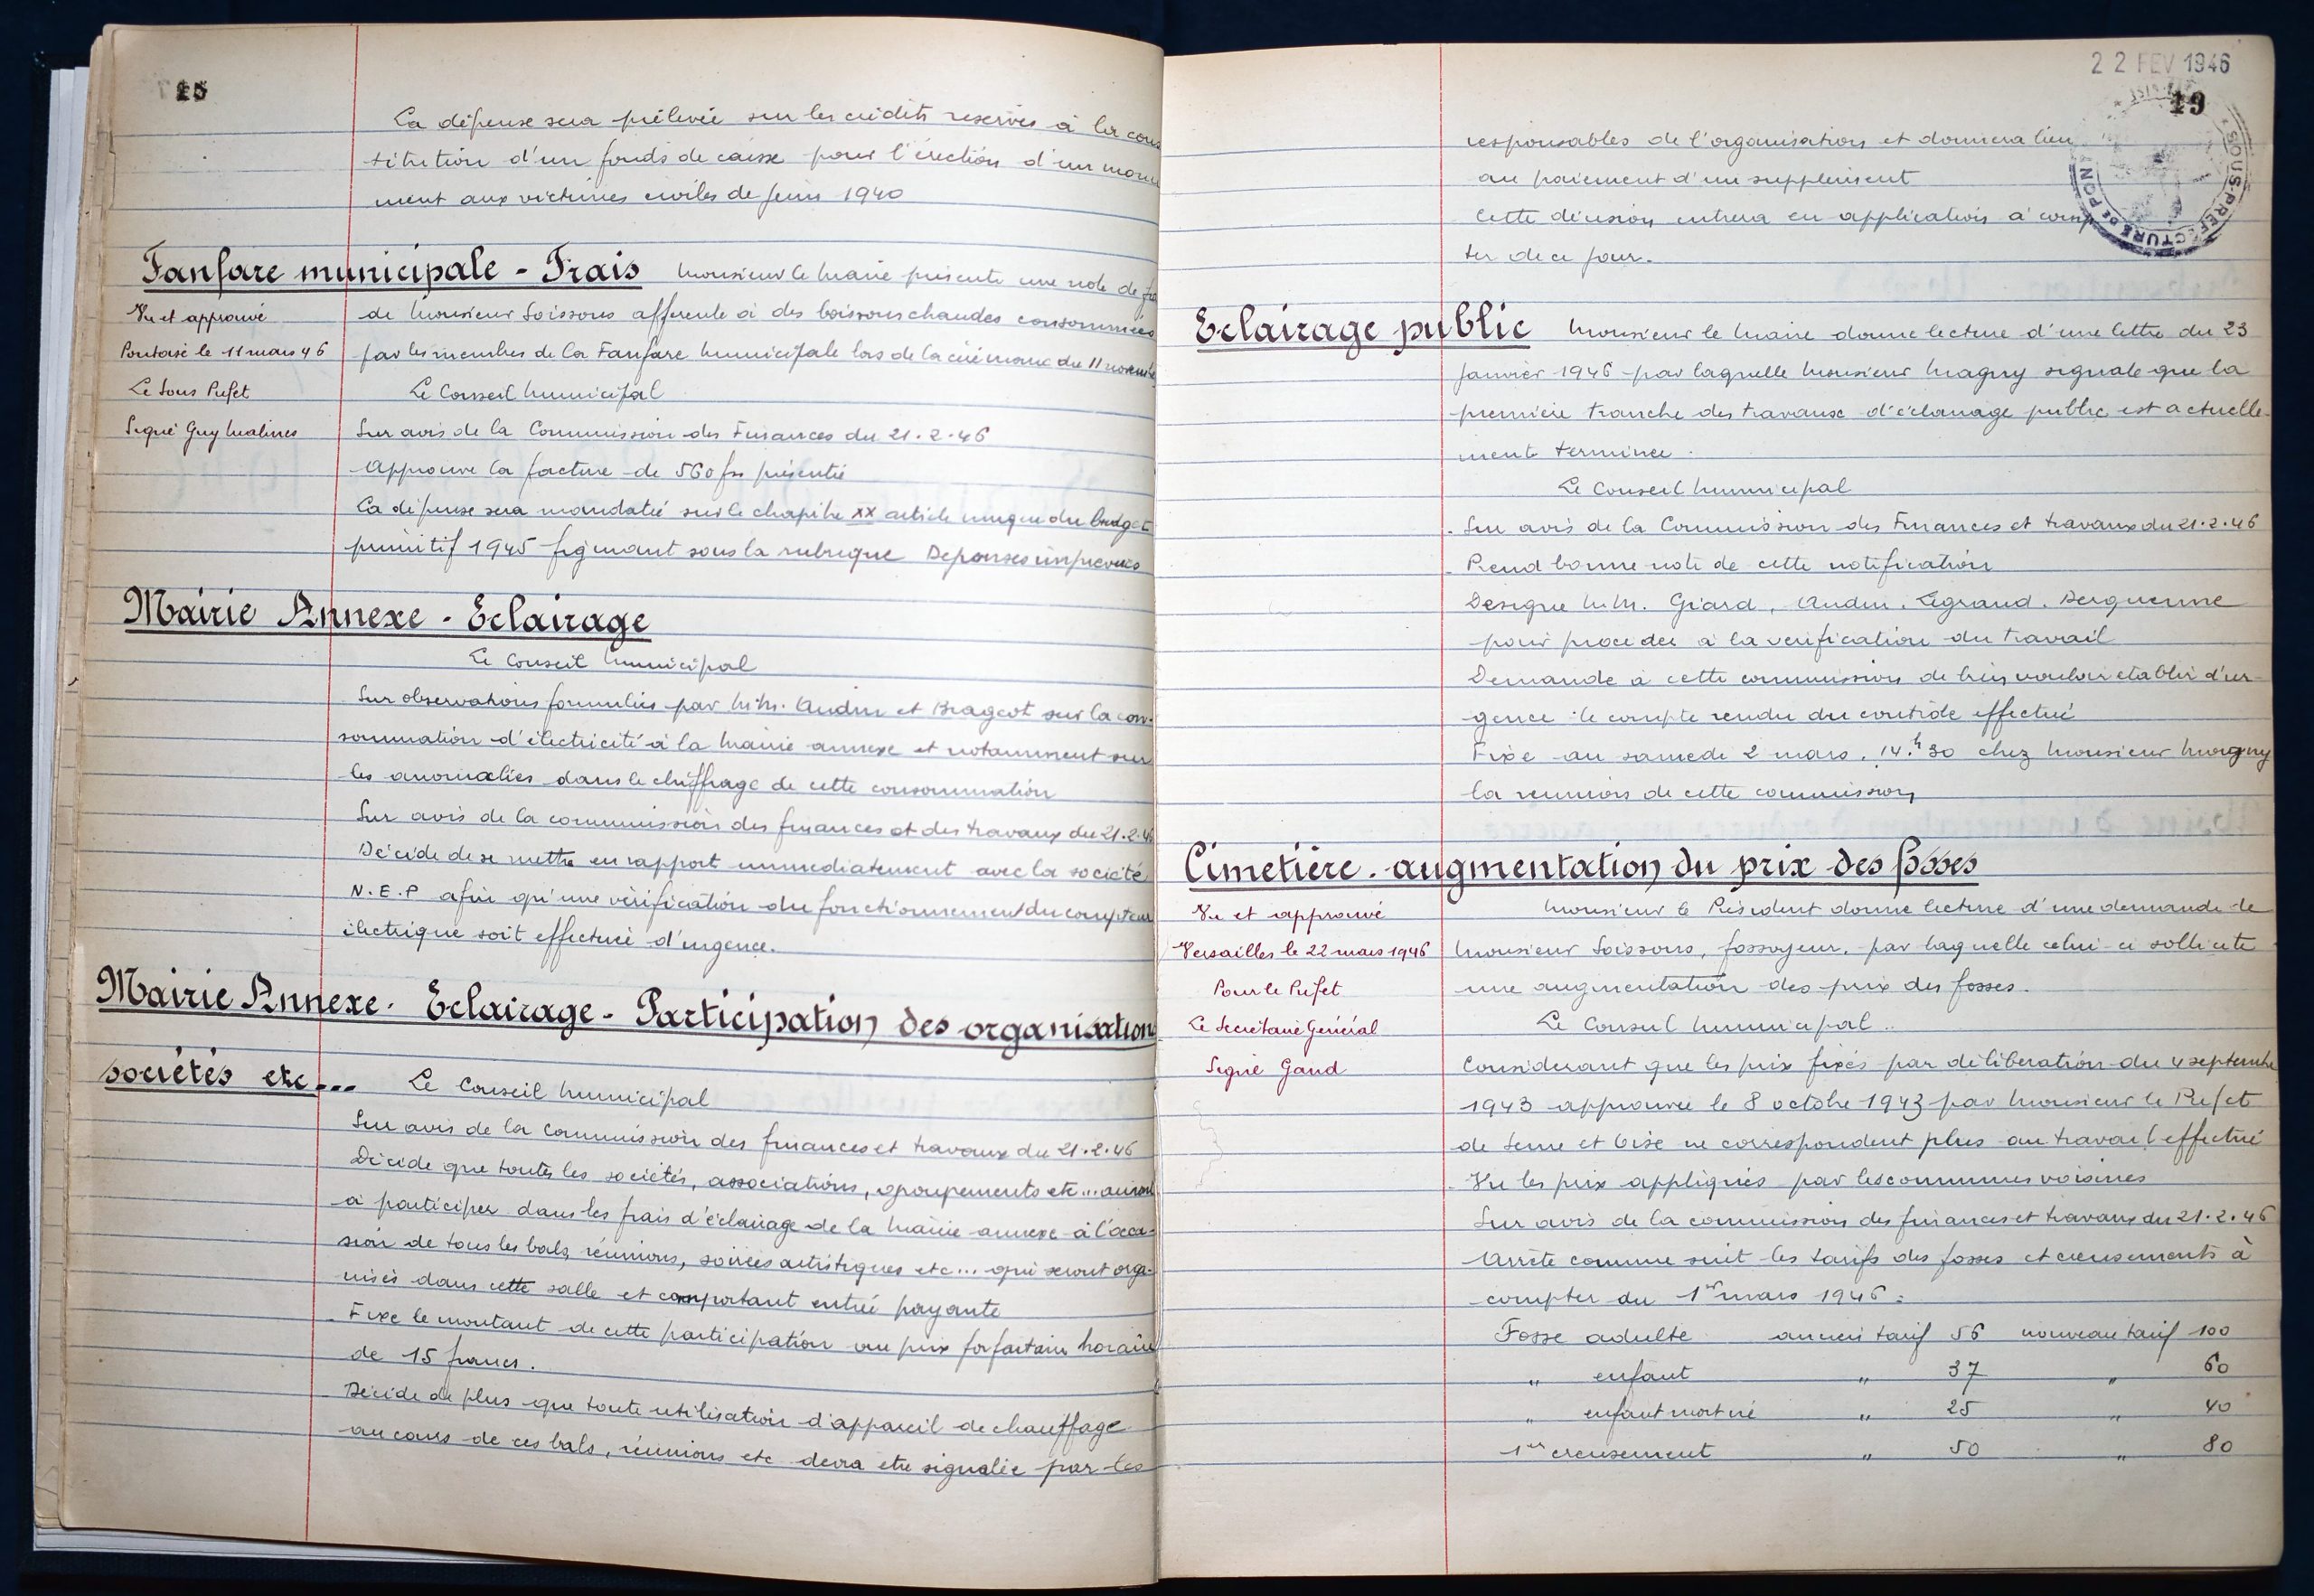 15
La dépense sera prélevée sur les crédits reservés à la cons
titution d'un fonds de caisse pour l'érection d'un monu
ment aux victimes civiles de Juin 1940
Fanfare municipale - Frais Monsieur le Maire présente une note de
de Monsieur Soissons afferente à des boissons chaudes consommées
par les membres de la Fanfare Municipale lors de la cérémonie du 11 novembre
Vu et approuvé
Pontoise le 11 mars 46
Le Sous Préfet
Signé Guy Malines
Le Conseil Municipal
Sur avis de la Commission des Finances du 21.2.46
Approuve la facture de 560 frs présentée
La dépense sera mandatée sur le chapitre XX article unique du budget
primitif 1945 figurant sous la rubrique Depenses imprévues
Mairie Annexe - Eclairage
Le Conseil Municipal
Sur observations formulées par M.M. Audin et Brageot sur la con-
sommation d'électricité à la Mairie annexe et notamment sur
les anomalies dans le chiffrage de cette consommation
Sur avis de la commission des finances et des travaux du 21.2.46
Décide de se mettre en rapport immediatement avec la societé
N.E.P afin qu'une vérification du fonctionnement du compteur
électrique soit effectuée d'urgence.
Mairie Annexe. Eclairage - Participation des organisations
sociétés etc...
Le Conseil Municipal
Sur avis de la Commission des finances et travaux du 21.2.46
Décide que toutes les sociétés, associations, groupements etc... auront
à participer dans les frais d'éclairage de la Mairie annexe à l'occa-
sion de tous les bals, réunions, soirées artistiques etc... qui seront orga-
nisés dans cette salle et comportant entrée payante
- Fixe le montant de cette participation au prix forfaitaire horaire
de 15 francs.
Décide de plus que toute utilisation d'appareil de chauffage
au cours de ces bals, réunions etc devra etre signalée par les
22 FEV 1946
19
SOUS-PREFECTURE DE PONT
responsables de l'organisation et donnera lieu
au paiement d'un supplément
Cette décision entrera en application à comp
ter de ce jour.
Eclairage public Monsieur le Maire donne lecture d'une lettre du 23
Janvier 1946 par laquelle Monsieur Magny signale que la
premiere tranche des travaux d'éclairage public est actuelle-
ment terminée.
Le Conseil Municipal
- Sur avis de la Commission des Finances et travaux du 21.2.46
- Prend bonne note de cette notification
Designe M.M. Giard, Audin, Legrand, Berquenne
pour proceder à la verification du travail
Demande à cette commission de bien vouloir etablir d'ur-
gence le compte rendu du contrôle effectué
Fixe au samedi 2 mars, 14.h 30 chez Monsieur Magny
la reunion de cette commission
Cimetière. augmentation du prix des fosses
Vu et approuvé
Versailles le 22 mars 1946
Pour le Préfet
Le Secrétaire Général
Signé Gand
Monsieur le Président donne lecture d'une demande de
Monsieur Soissons, fossoyeur, par laquelle celui-ci sollicite
une augmentation des prix des fosses.
Le Conseil Municipal..
Considerant que les prix fixés par déliberation du 4 septembre
1943 approuvée le 8 octobre 1943 par Monsieur le Préfet
de Seine et Oise ne correspondent plus au travail effectué
- Vu les prix appliqués par les communes voisines
Sur avis de la commission des finances et travaux du 21.2.46
Arrête comme suit les tarifs des fosses et creusements à
compter du 1er mars 1946 :
Fosse adulte ancien tarif 56 nouveau tarif 100
" enfant " 37 " 60
" enfant mort né " 25 " 40
1er creusement " 50 " 80